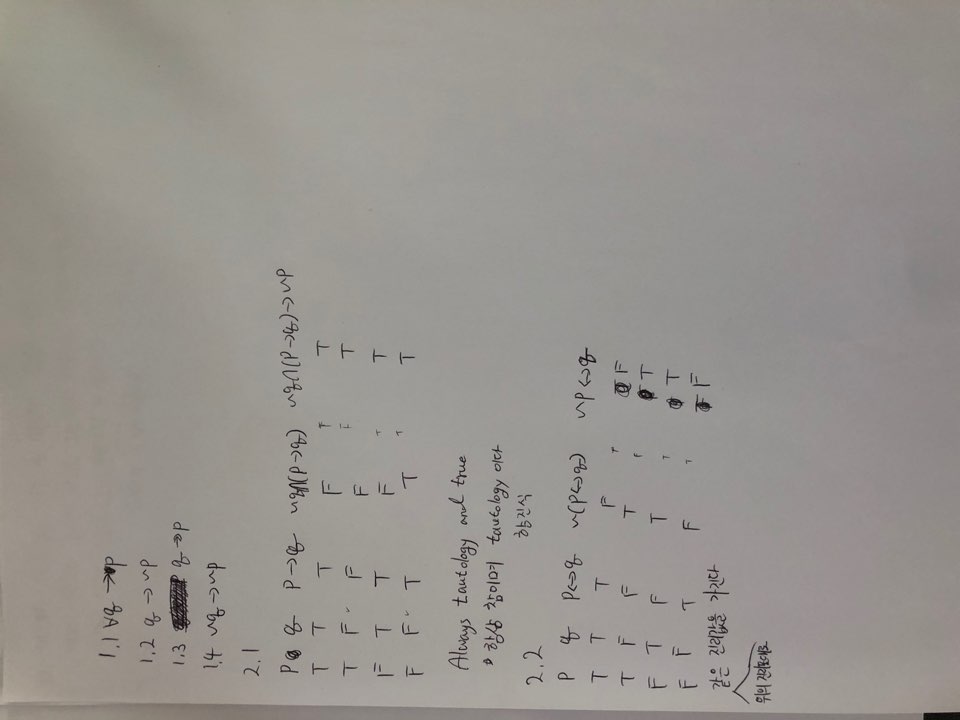 1.1 ∀q → p
1.2 q → ~p
1.3 q → p
1.4 ~q → ~p
2.1
P q P→q ~q∧(P→q) ~q∧(P→q)→~P
T T T F T T
T F F F F T
F T T F T T
F F T T T T
Always tautology and true
항상 참이며 tautology 이다
항진식
2.2
P q P↔q ~(P↔q) ~P↔q
T T T F T F
T F F T F T
F T F T T T
F F T F T F
같은 진리값을 가진다
위의 진리표대로